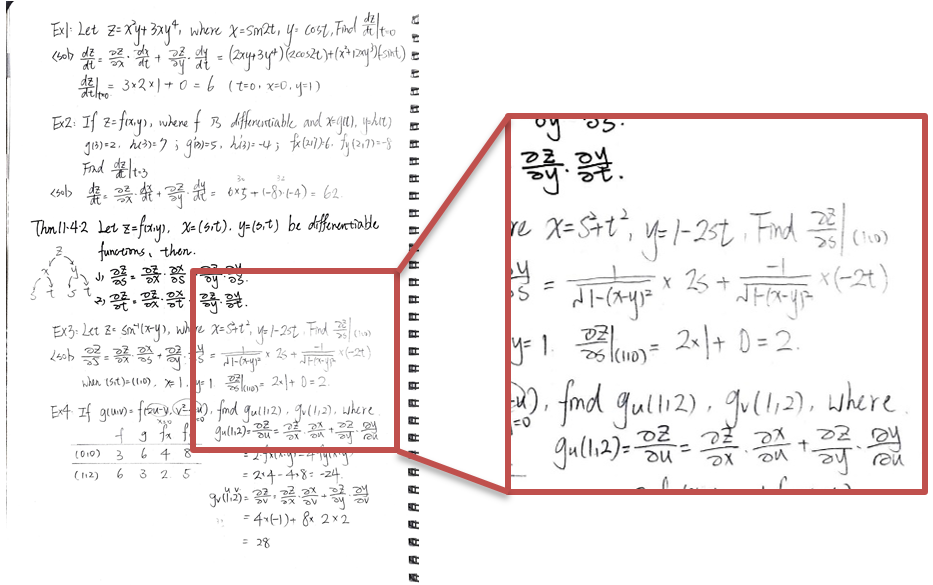 Ex1: Let z=x²y+3xy⁴, where x=sin2t, y=cost, Find dz/dt|t=0
<sol> dz/dt = ∂z/∂x · dx/dt + ∂z/∂y · dy/dt = (2xy+3y⁴)(2cos2t)+(x²+12xy³)(-sint)
dz/dt|t=0 = 3×2×1+0 = 6 (t=0, x=0, y=1)
Ex2: If z=f(x,y), where f is differentiable and x=g(t), y=h(t)
g(3)=2, h(3)=7 ; g'(3)=5, h'(3)=-4 ; fx(2,7)=6, fy(2,7)=-8
Find dz/dt|t=3
<sol> dz/dt = ∂z/∂x · dx/dt + ∂z/∂y · dy/dt = 6×5+(-8)·(-4) = 62
30 32
Thm11.4.2 Let z=f(x,y), x=(s,t). y=(s,t) be differentiable
functions, then.
z
x y
s t s t
1) ∂z/∂s = ∂z/∂x · ∂x/∂s ∂z/∂y · ∂y/∂s.
2) ∂z/∂t = ∂z/∂x · ∂x/∂t ∂z/∂y · ∂y/∂t.
Ex3: Let z= sin⁻¹(x-y), where x=s²+t², y=1-2st, Find ∂z/∂s|(1,0)
<sol> ∂z/∂s = ∂z/∂x · ∂x/∂s + ∂z/∂y · ∂y/∂s = 1/√1-(x-y)² × 2s + -1/√1-(x-y)² ×(-2t)
when (s,t)=(1,0), x=1, y=1 ∂z/∂s|(1,0) = 2×1+0=2.
Ex4. If g(u,v)=f(2u-v, v²-4u), find gu(1,2), gv(1,2), where
x=0 y=0
f g fx f
(0,0) 3 6 4 8
(1,2) 6 3 2 5
gu(1,2)= ∂z/∂u = ∂z/∂x · ∂x/∂u + ∂z/∂y · ∂y/∂u
= 2·fx(x,y)-4·fy(x,y)
= 2×4-4×8= -24.
gv(1,2)= ∂z/∂v = ∂z/∂x · ∂x/∂v + ∂z/∂y · ∂y/∂v
= 4×(-1)+ 8× 2×2
= 28
∂y ∂s.
∂z/∂y · ∂y/∂t.
re x=s²+t², y=1-2st, Find ∂z/∂s|(1,0)
∂y/∂s = 1/√1-(x-y)² × 2s + -1/√1-(x-y)² ×(-2t)
y=1. ∂z/∂s|(1,0) = 2×1+0=2.
u), find gu(1,2), gv(1,2), where.
=0
gu(1,2)= ∂z/∂u = ∂z/∂x · ∂x/∂u + ∂z/∂y · ∂y/∂u